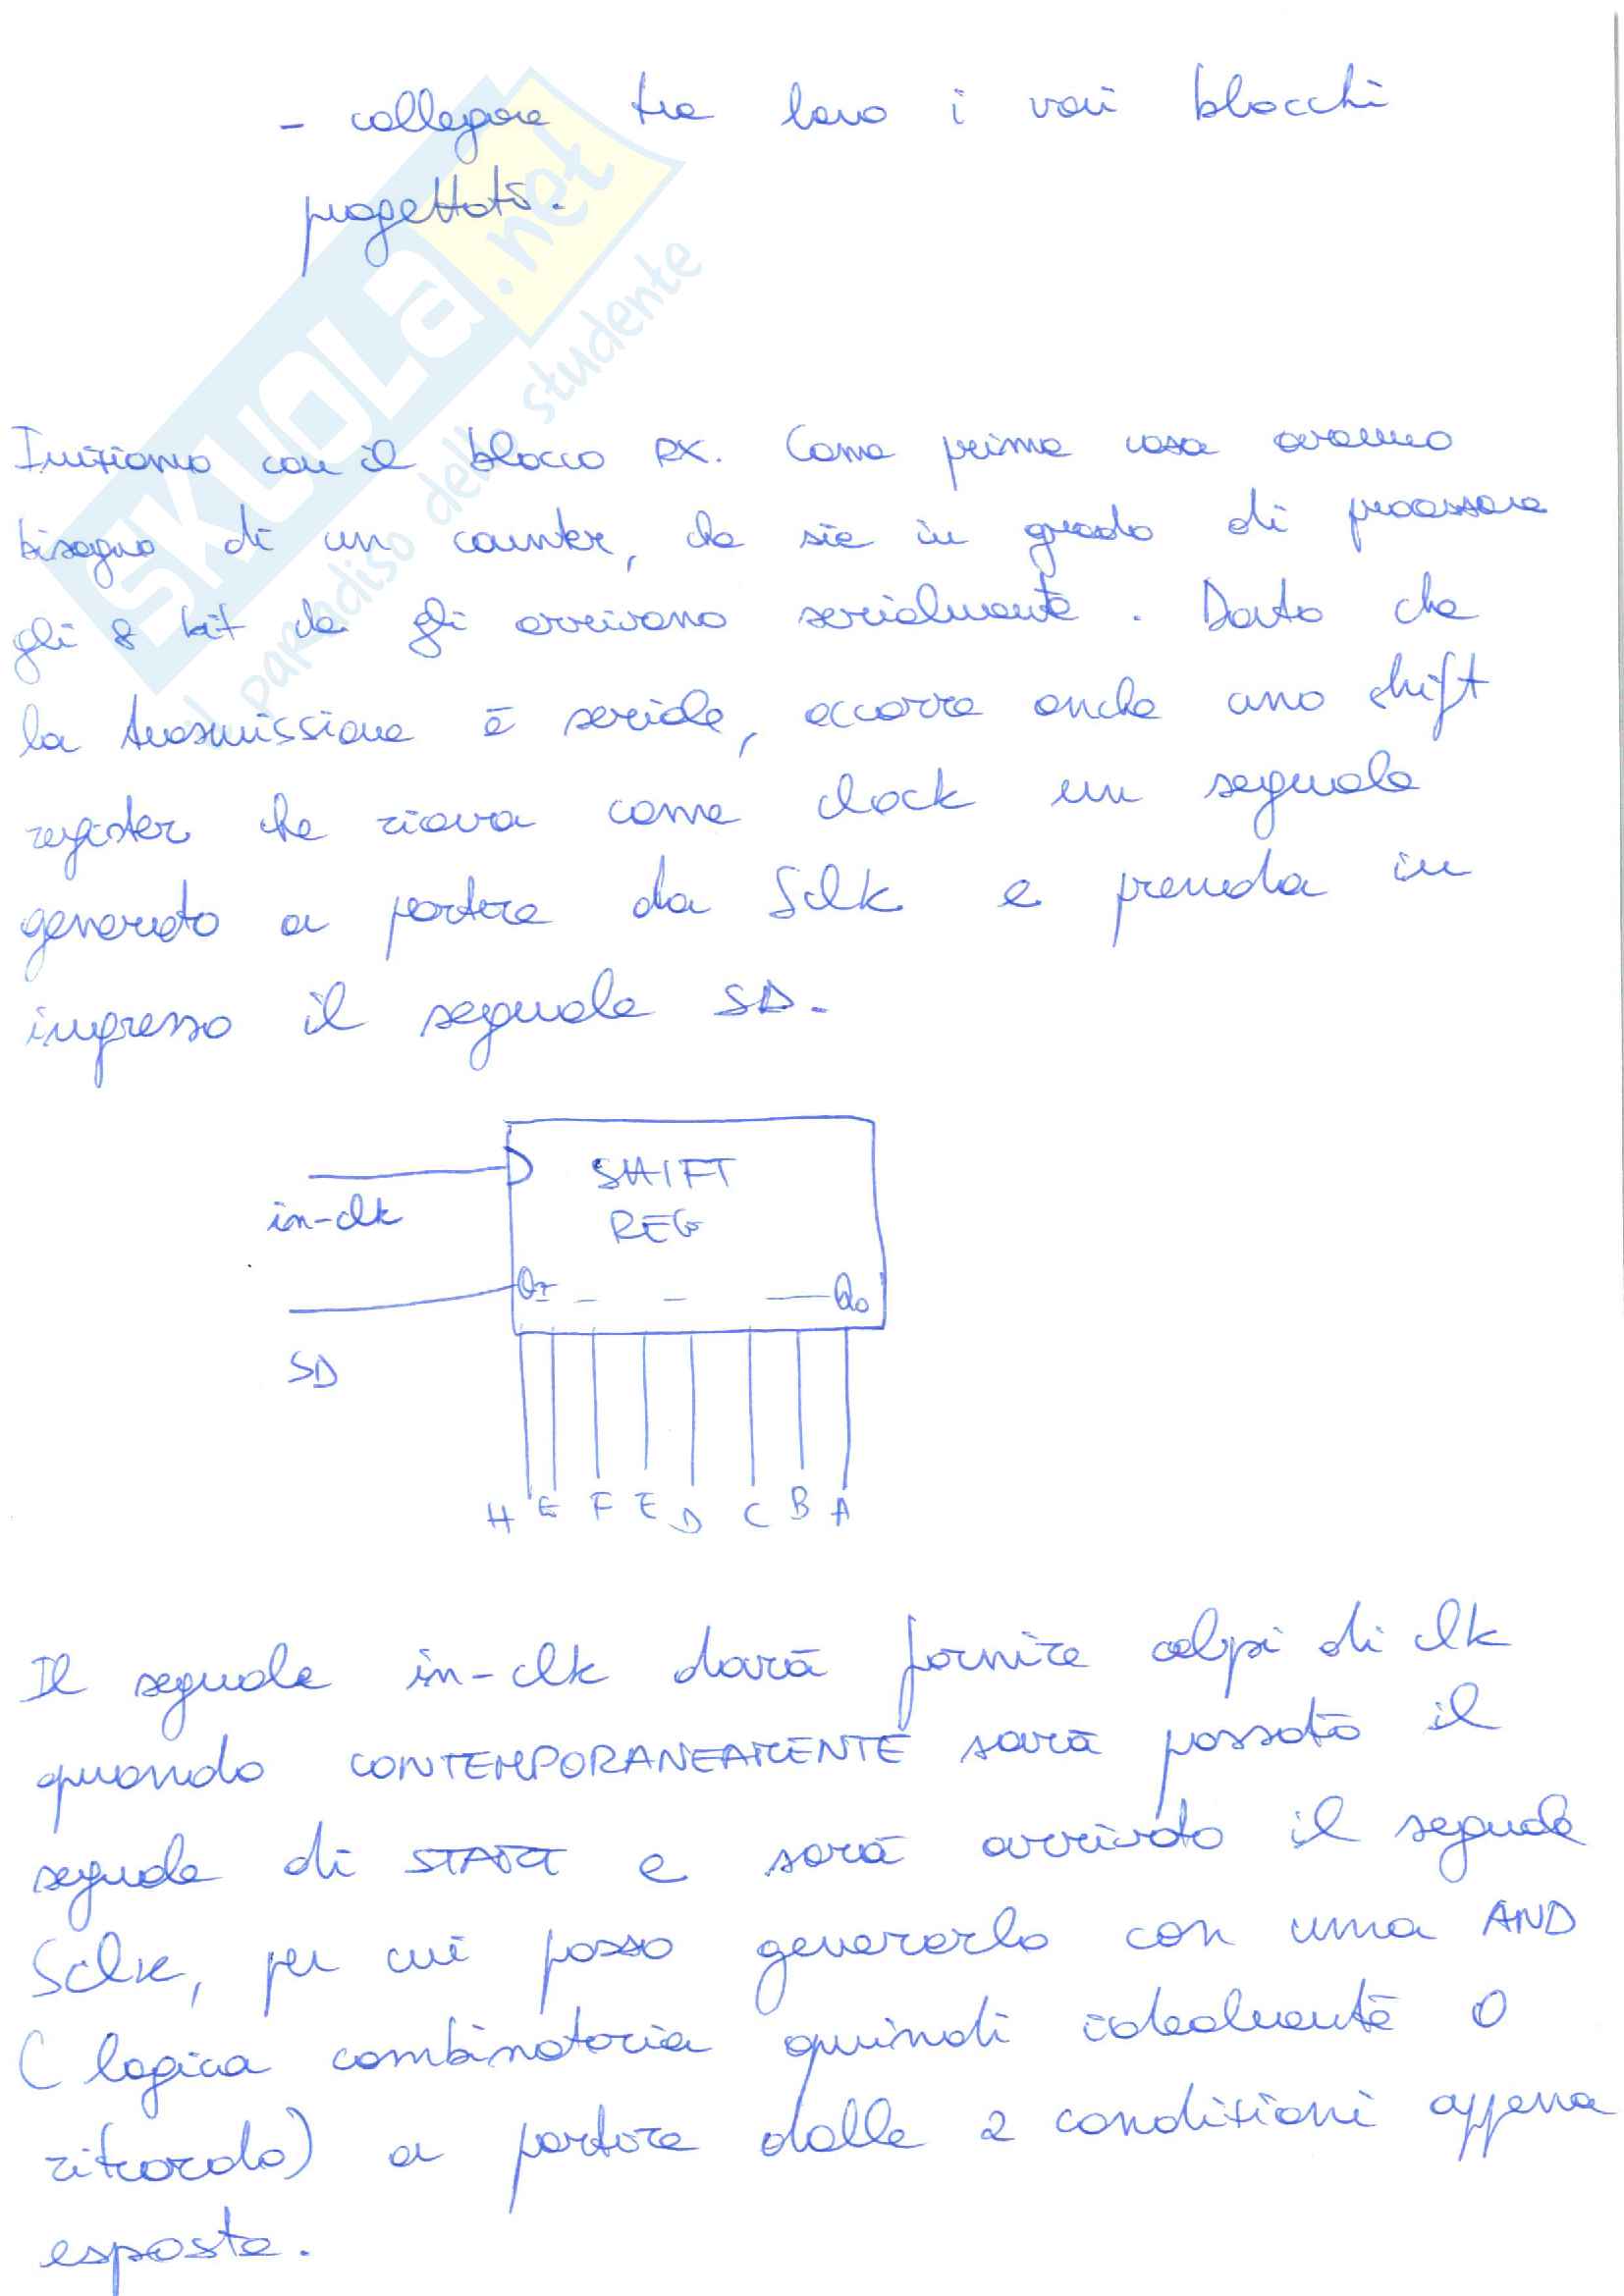 - collegare tra loro i vari blocchi
progettati.
SKUOLA.net
il paradiso dello studente
Iniziamo con il blocco RX. Come prima cosa avremo
bisogno di un counter, che sia in grado di processare
gli 8 bit che gli arrivano serialmente. Dato che
la trasmissione è seriale, occorre anche uno shift
register che riceva come clock un segnale
generato a partire da Sclk e prenda in
ingresso il segnale SD.
SHIFT
in-clk
REG
Q7 - - — Q0
SD
H E F E D C B A
Il segnale in-clk dovrà fornire colpi di clk
quando CONTEMPORANEAMENTE sarà passato il
segnale di START e sarà arrivato il segnale
Sclk, per cui posso generarlo con una AND
(logica combinatoria quindi idealmente 0
ritardo) a partire dalle 2 condizioni appena
esposte.